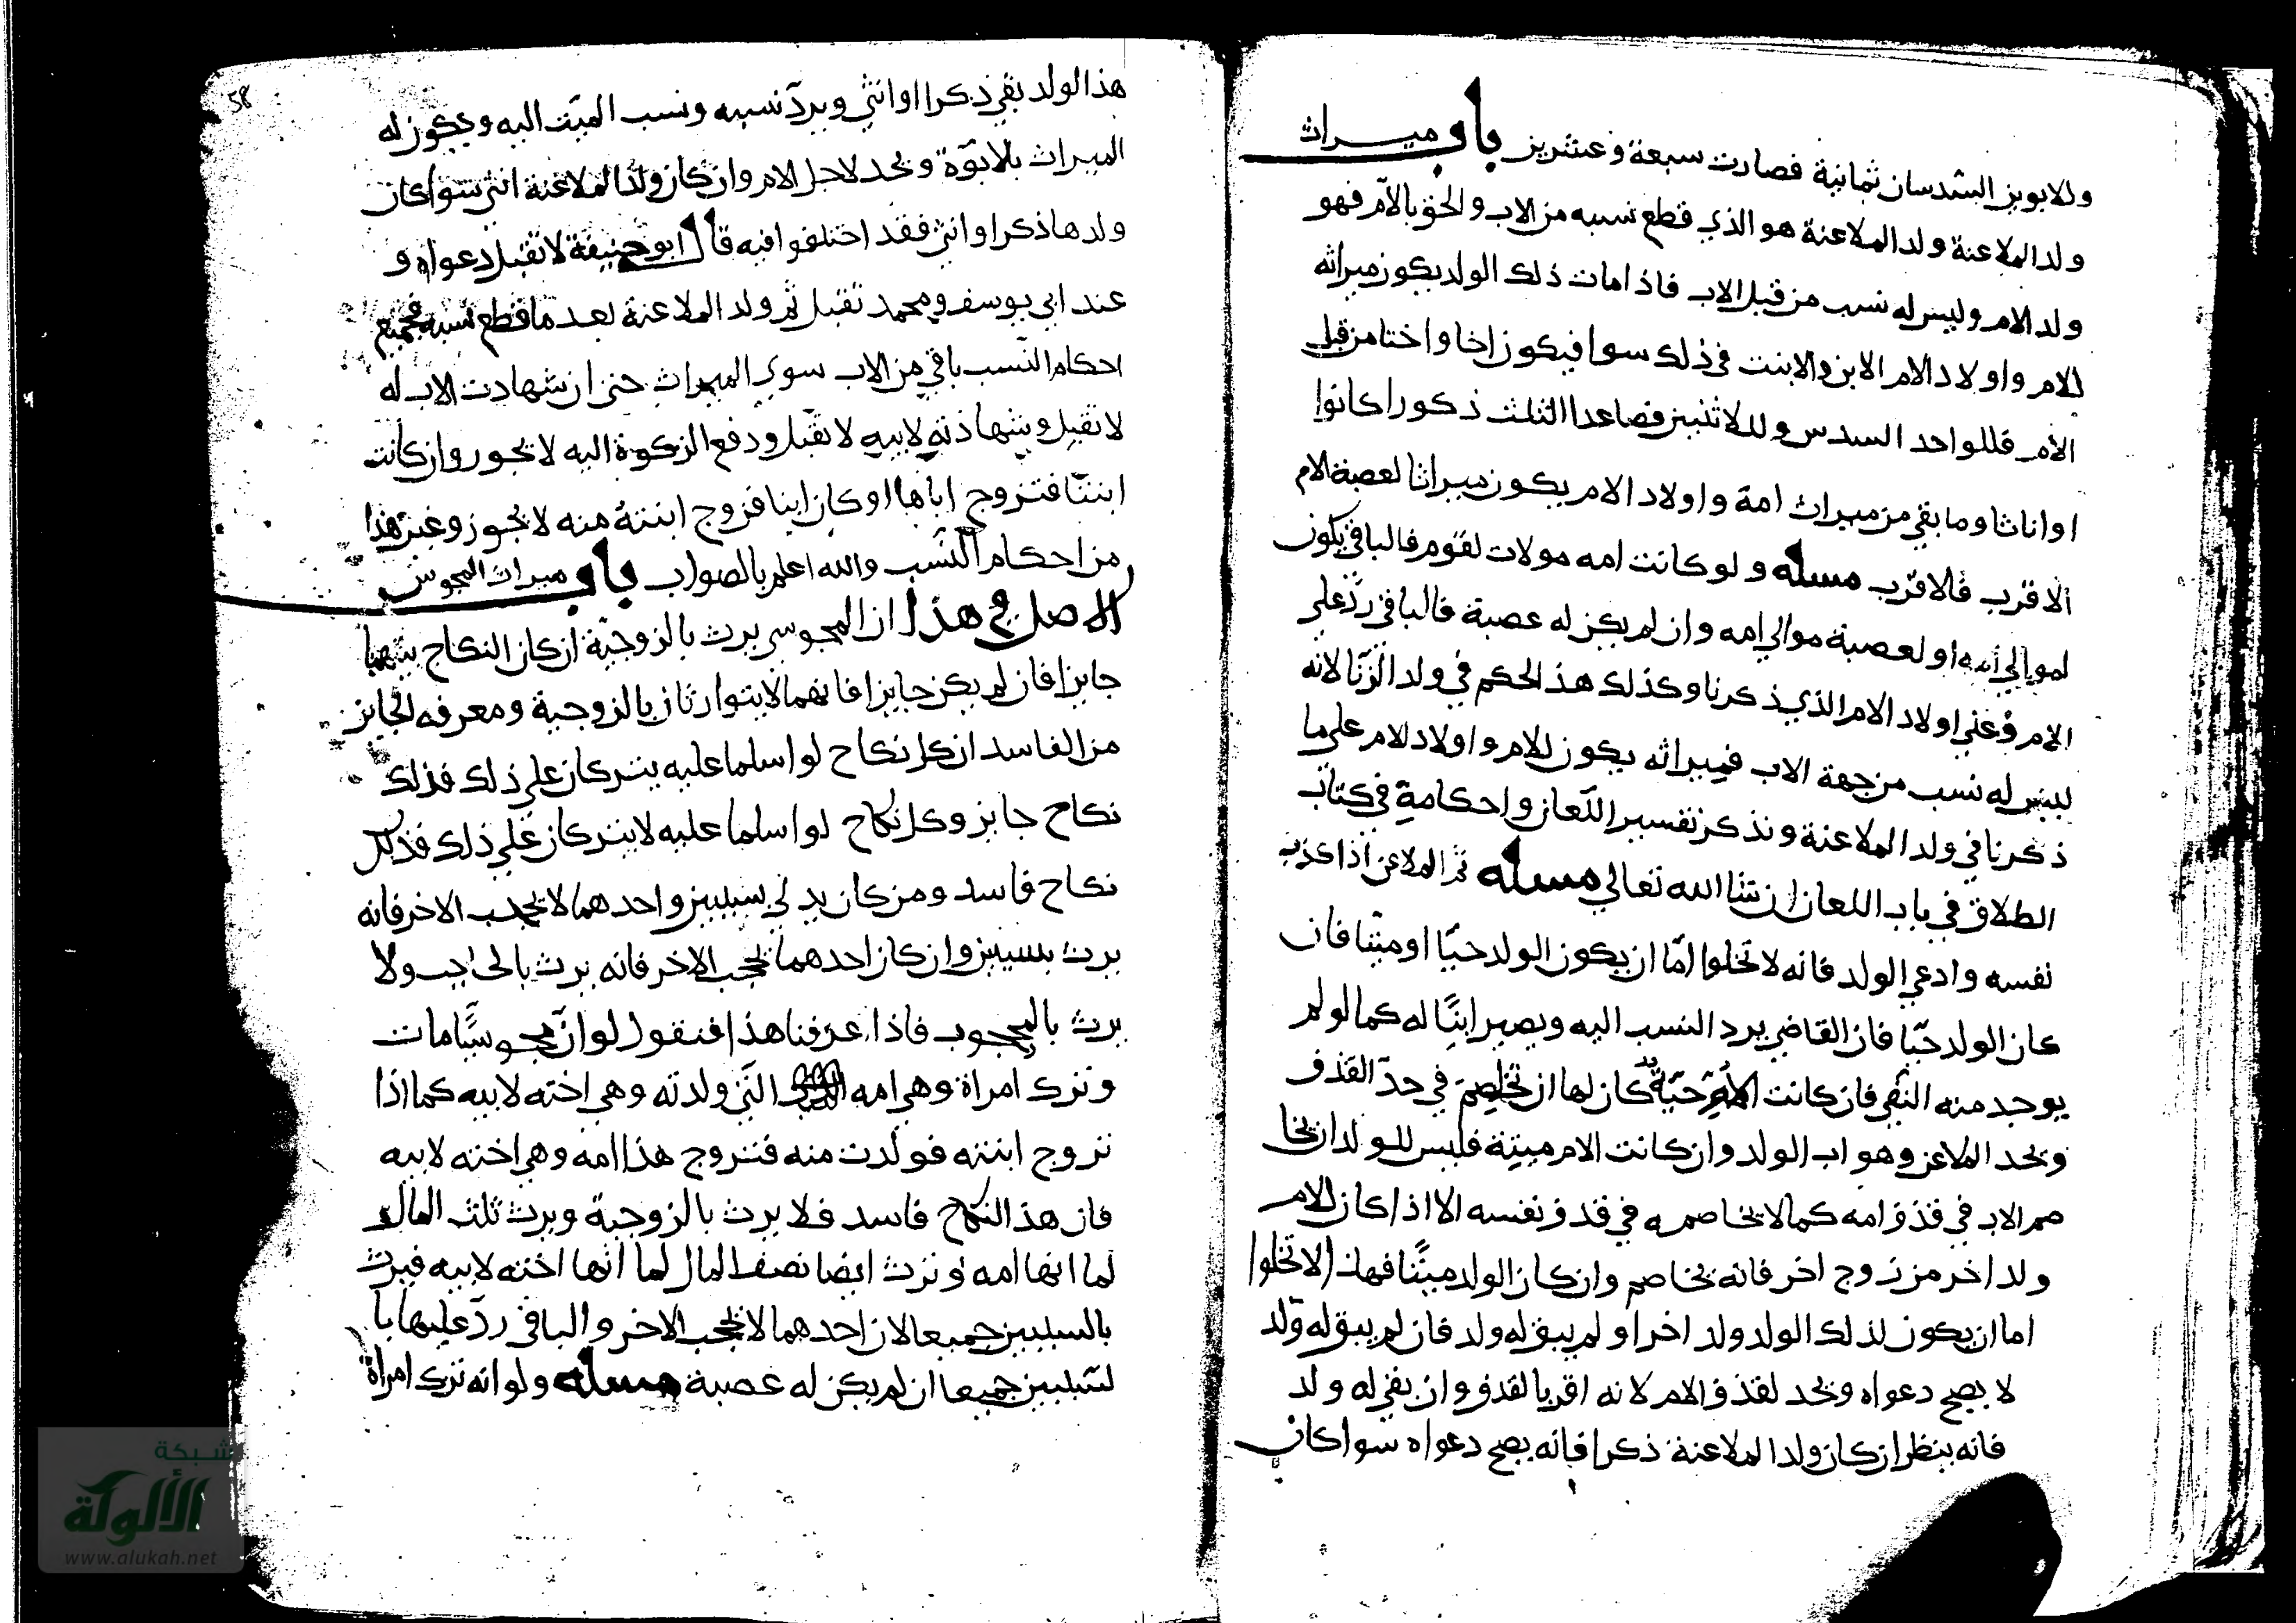 وللابوين السدسان ثمانية فصارت سبعة وعشرين باب ميراث
ولد الملاعنة ولد الملاعنة هو الذي قطع نسبه من الاب والحق بالام فهو
ولد الام وليس له نسب من قبل الاب فاذا مات ذلك الولد يكون ميراثه
للام واولاد الام الابن والابنت في ذلك سوا فيكون اخا واختا من قبل
الام فللواحد السدس وللاثنين فصاعدا الثلث ذكورا كانوا
او اناثا وما بقي من ميراث امه واولاد الام يكون ميراثا لعصبة الام
الاقرب فالاقرب مسله ولو كانت امه مولات لقوم فالباقي يكون
لموالي امه او لعصبة موالي امه وان لم يكن له عصبة فالباقي رد على
الام وعلى اولاد الام الذي ذكرنا وكذلك هذ الحكم في ولد الزنا لانه
ليس له نسب من جهة الاب فميراثه يكون للام واولاد لام على ما
ذكرنا في ولد الملاعنة ونذكر تفسير اللعان واحكامه في كتاب
الطلاق في باب اللعان ان شا الله تعالي مسله ثم الملاعن اذا كذب
نفسه وادعي الولد فانه لا تخلوا اما ان يكون الولد حيا او ميتا فان
كان الولد حيا فان القاضي يرد النسب اليه ويصير ابنا له كما لو لم
يوجد منه النفي فان كانت الام حية كان لها ان تخاصم في حد القذف
ويحد الملاعن وهو اب الولد وان كانت الام ميتة فليس للولد ان يخا
صم الاب في قذف امه كما لا يخاصمه في قذف نفسه الا اذا كان للام
ولد اخر من زوج اخر فانه يخاصم وان كان الولد ميتا فهذا لا تخلوا
اما ان يكون لذلك الولد ولد اخر او لم يبق له ولد فان لم يبق له ولد
لا يصح دعواه ويحد لقذف الام لانه اقر بالقذف وان بقي له ولد
فانه ينظر ان كان ولد الملاعنة ذكرا فانه يصح دعواه سوا كان
58
هذ الولد بقي ذكرا او انثي ويرد نسبه ونسب الميت اليه ويكون له
الميراث بالابوة ويحد لاجل الام وان كان ولد الملاعنة انثي سوا كان
ولدها ذكرا او انثي فقد اختلفوا فيه قال ابو حنيفة لا تقبل دعواه و
عند ابي يوسف ومحمد تقبل ثم ولد الملاعنة بعد ما قطع نسبه فجميع
احكام النسب باقي من الاب سوي الميراث حتى ان شهادت الاب له
لا تقبل وشهادته لابيه لا تقبل ودفع الزكوة اليه لا تجوز وان كانت
ابنتا فتزوج اباها او كان ابنا فزوج ابنته منه لا يجوز وغير هذا
من احكام النسب والله اعلم بالصواب باب ميراث المجوس
الاصل في هذا ان المجوسي يرث بالزوجية ان كان النكاح بينهما
جايزا فان لم يكن جايزا فانهما لا يتوارثان بالزوجية ومعرفه الجايز
من الفاسد ان كل نكاح لو اسلما عليه يتركان علي ذلك فذلك
نكاح جايز وكل نكاح لو اسلما عليه لا يتركان علي ذلك فذلك
نكاح فاسد ومن كان يدلي بسببين واحدهما لا يحجب الاخر فانه
يرث بسببين وان كان احدهما يحجب الاخر فانه يرث بالحاجب ولا
يرث بالمحجوب فاذا عرفنا هذا فنقول لو ان مجوسيا مات
وترك امراة وهي امه التي ولدته وهي اخته لابيه كما اذا
تزوج ابنته فولدت منه فتزوج هذا امه وهي اخته لابيه
فان هذ النكاح فاسد فلا يرث بالزوجية ويرث ثلث المال
لما انها امه وترث ايضا نصف المال لما انها اخته لابيه فيرث
بالسببين جميعا لان احدهما لا يحجب الاخر والباقي رد عليها با
لسببين جميعا ان لم يكن له عصبة مسله ولو انه ترك امراة
شبكة
الألوكة
www.alukah.net